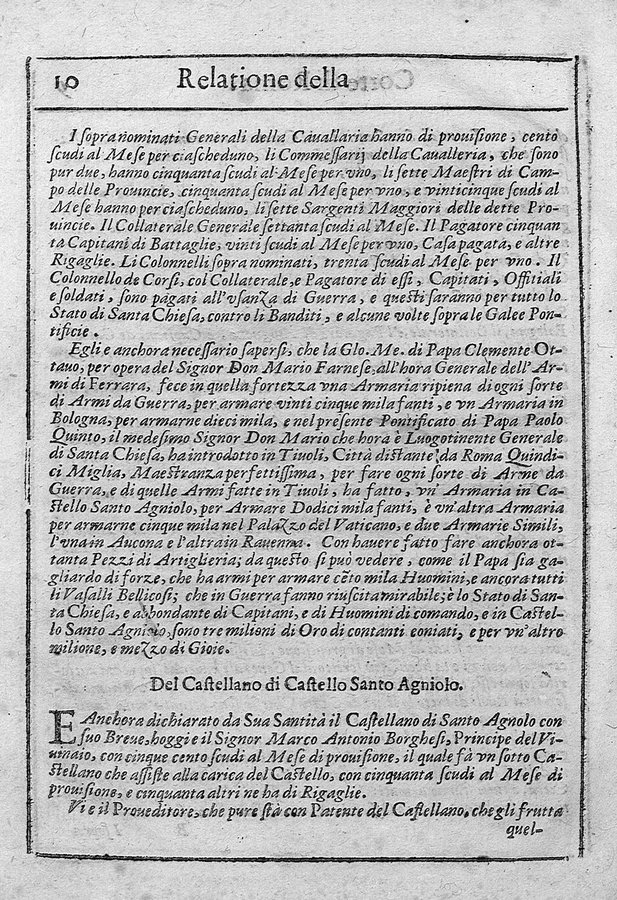 10 Relatione della
I sopra nominati Generali della Cauallaria hanno di prouisione, cento
scudi al Mese per ciascheduno, li Commessarij della Caualleria, che sono
pur due, hanno cinquanta scudi al Mese per vno, li sette Maestri di Cam-
po delle Prouincie, cinquanta scudi al Mese per vno, e vinticinque scudi al
Mese hanno per ciascheduno, li sette Sargenti Maggiori delle dette Pro-
uincie. Il Collaterale Generale settanta scudi al Mese. Il Pagatore cinquan
ta Capitani di Battaglie, vinti scudi al Mese per vno, Casa pagata, e altre
Rigaglie. Li Colonnelli sopra nominati, trenta scudi al Mese per vno. Il
Colonnello de Corsi, col Collaterale, e Pagatore di essi, Capitati, Offitiali
e soldati, sono pagati all'vsanza di Guerra, e questi saranno per tutto lo
Stato di Santa Chiesa, contro li Banditi, e alcune volte sopra le Galee Pon-
tificie.
Egli e anchora necessario sapersi, che la Glo. Me. di Papa Clemente Ot-
tauo, per opera del Signor Don Mario Farnese, all'hora Generale dell'Ar-
mi di Ferrara, fece in quella fortezza vna Armaria ripiena di ogni sorte
di Armi da Guerra, per armare vinti cinque mila fanti, e vn Armaria in
Bologna, per armarne dieci mila, e nel presente Pontificato di Papa Paolo
Quinto, il medesimo Signor Don Mario che hora è Luogotinente Generale
di Santa Chiesa, ha introdotto in Tiuoli, Città distante da Roma Quindi-
ci Miglia, Maestranza perfettissima, per fare ogni sorte di Arme da
Guerra, e di quelle Armi fatte in Tiuoli, ha fatto, vn'Armaria in Ca-
stello Santo Agniolo, per Armare Dodici mila fanti, è vn'altra Armaria
per armarne cinque mila nel Palazzo del Vaticano, e due Armarie Simili,
l'vna in Ancona e l'altra in Rauenna. Con hauere fatto fare anchora ot-
tanta Pezzi di Artiglieria; da questo si può vedere, come il Papa sia ga-
gliardo di forze, che ha armi per armare cẽto mila Huomini, e ancora tutti
li Vasalli Bellicosi; che in Guerra fanno riuscita mirabile; è lo Stato di San-
ta Chiesa, e abbondante di Capitani, e di Huomini di comando, e in Castel-
lo Santo Agniolo, sono tre milioni di Oro di contanti coniati, e per vn'altro
milione, e mezzo di Gioie.
Del Castellano di Castello Santo Agniolo.
E Anchora dichiarato da Sua Santità il Castellano di Santo Agnolo con
suo Breue, hoggi e il Signor Marco Antonio Borghesi, Principe del Vi-
uaio, con cinque cento scudi al Mese di prouisione, il quale fà vn sotto Ca-
stellano che assiste alla carica del Castello, con cinquanta scudi al Mese di
prouisione, e cinquanta altri ne ha di Rigaglie.
Vi e il Proueditore, che pure stà con Patente del Castellano, che gli frutta
quel-